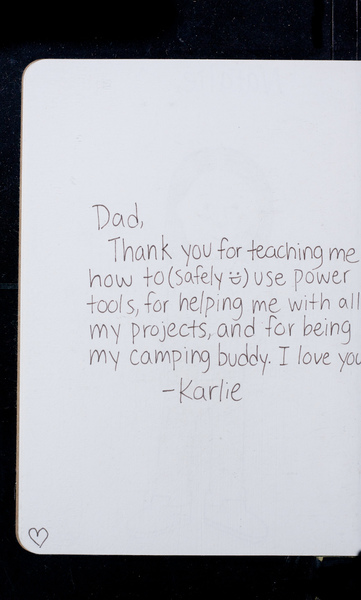 Dad,
Thank you for teaching me
how to (safely ☺) use power
tools, for helping me with all
my projects, and for being
my camping buddy. I love you
-Karlie